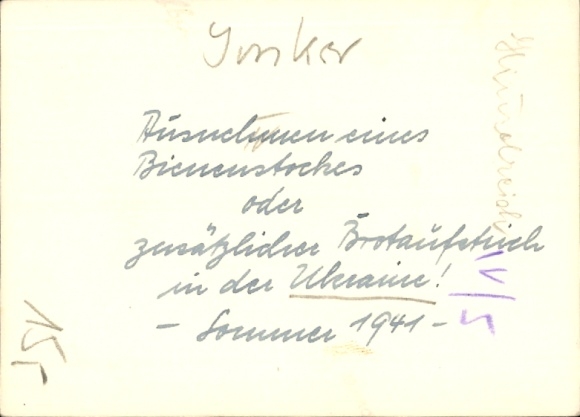 Ausnehmen eines
Bienenstockes
oder
zusätzlicher Brotaufstrich
in der Ukraine!
- Sommer 1941 -
IV/5
15,-